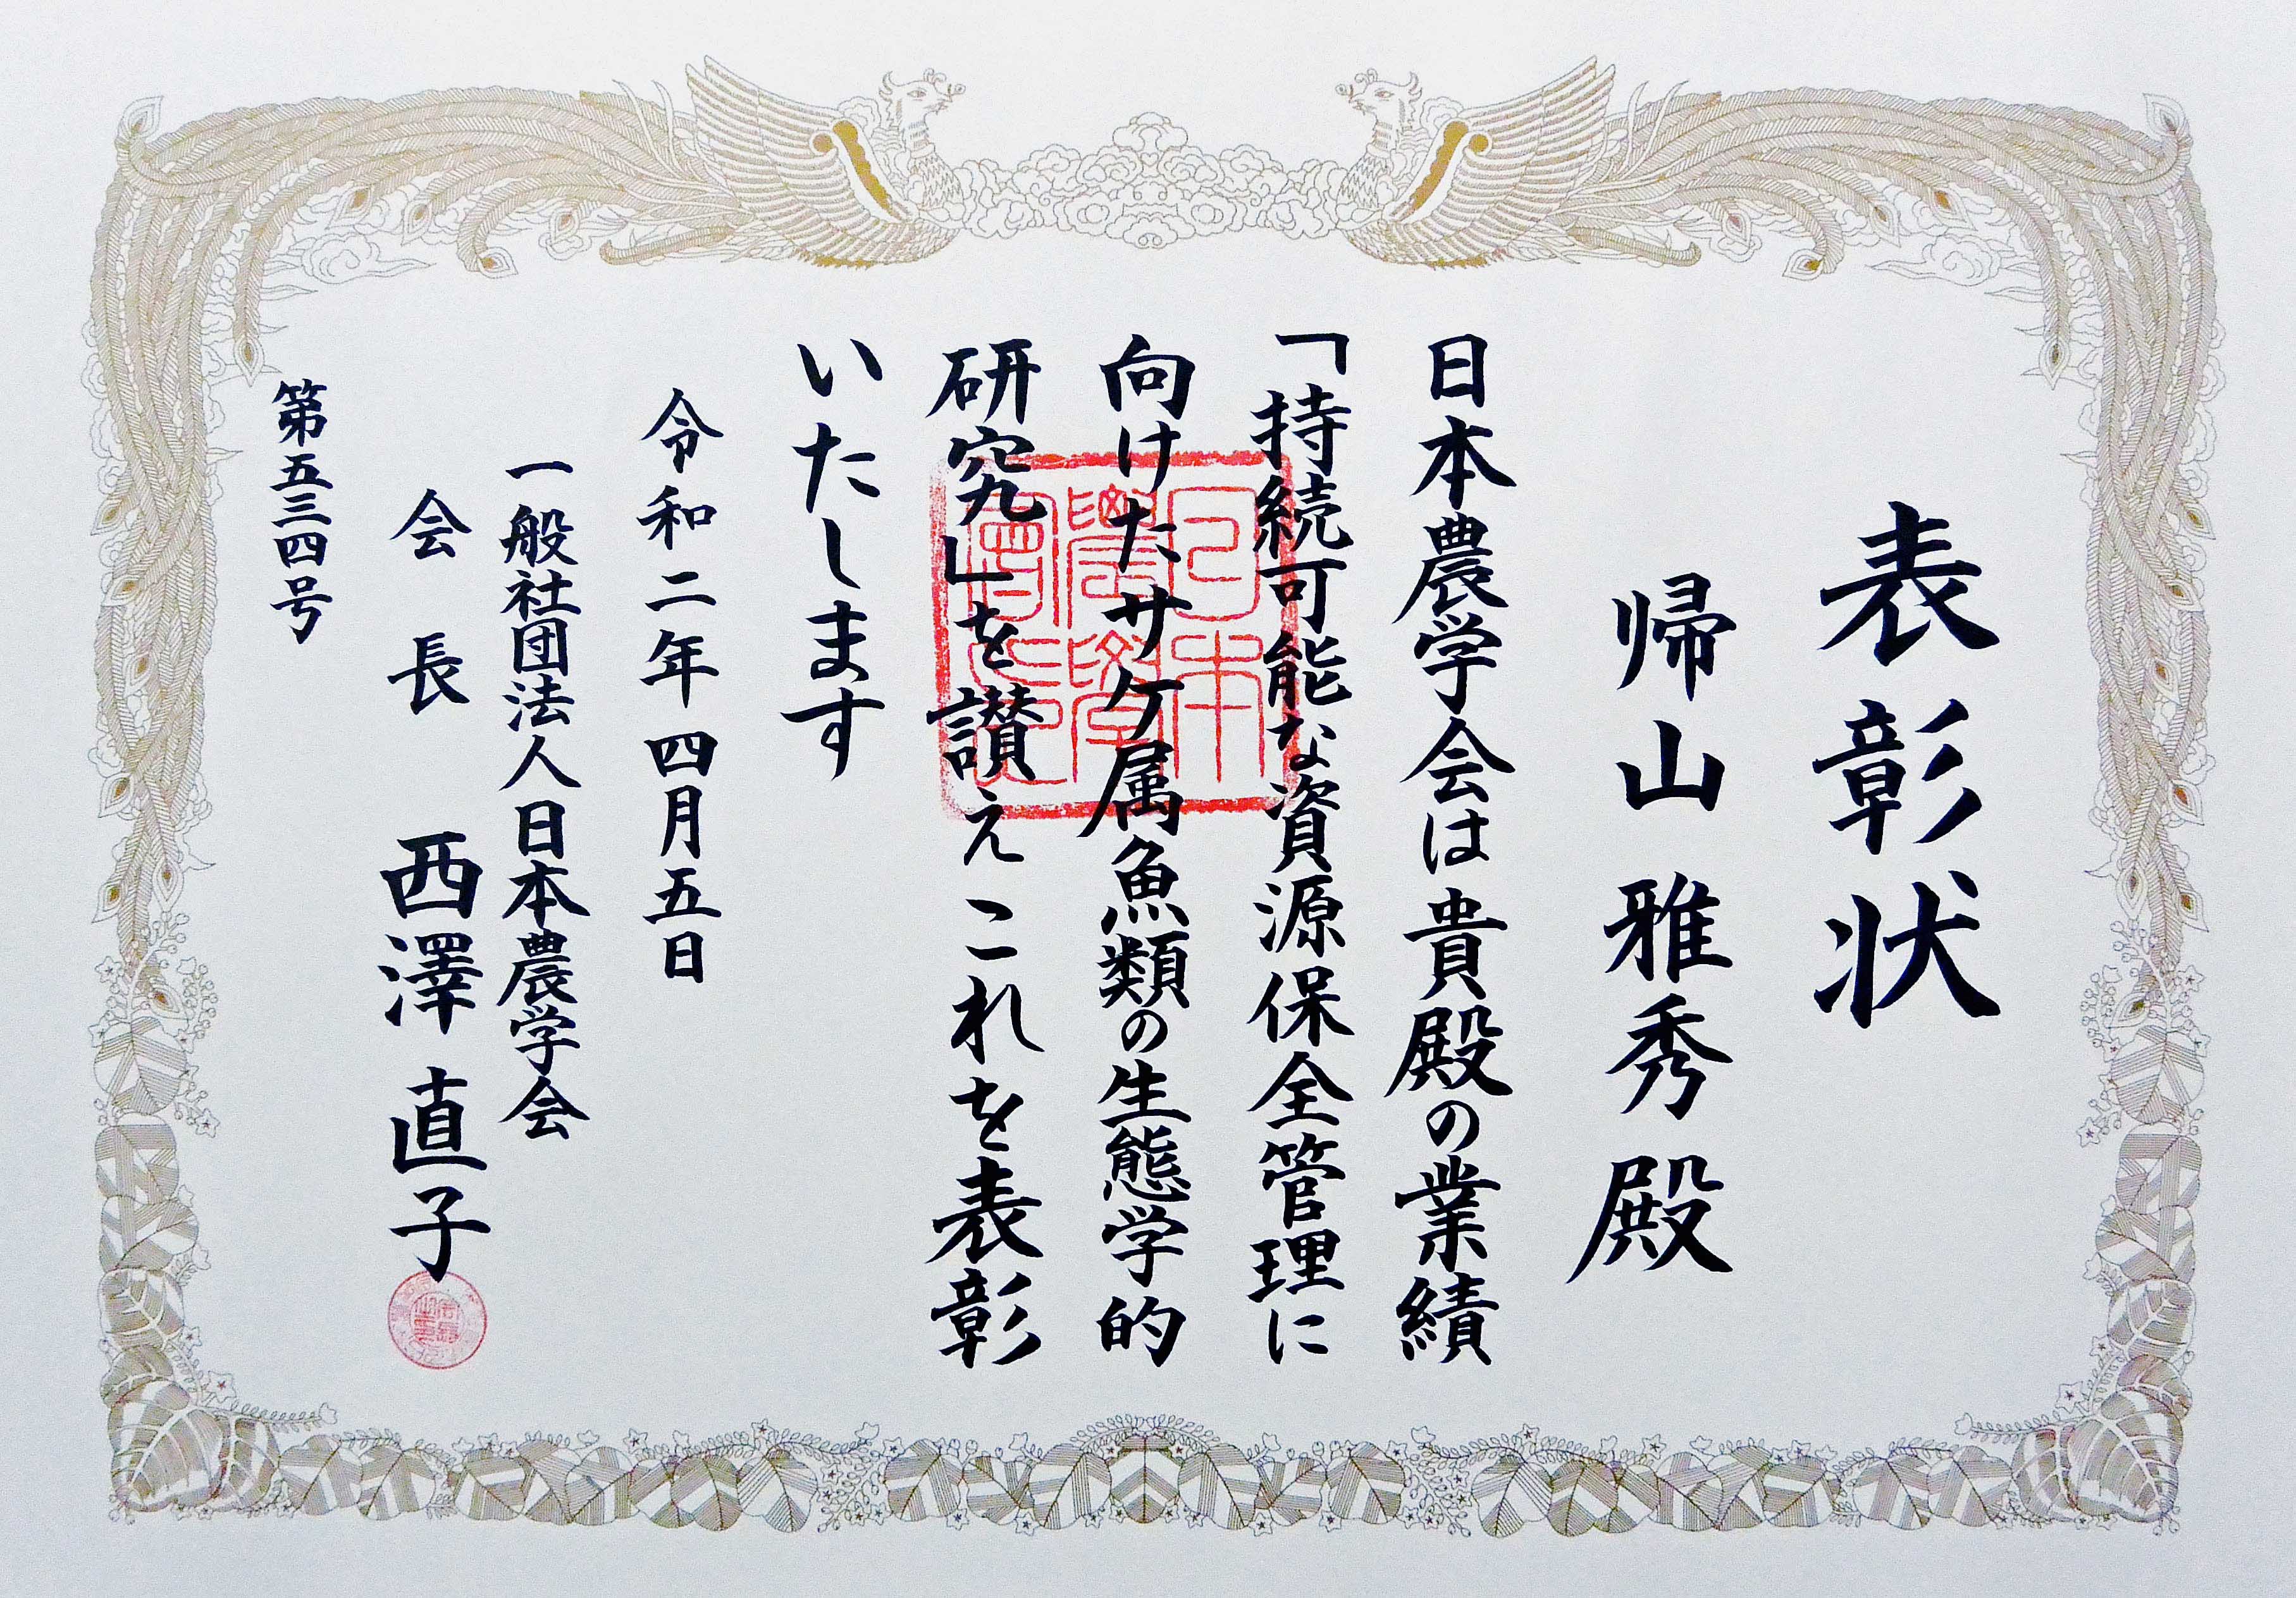 表彰状
帰山雅秀殿
日本農学会は貴殿の業績
「持続可能な資源保全管理に
向けたサケ属魚類の生態学的
研究」を讃えこれを表彰
いたします
令和二年四月五日
一般社団法人日本農学会
会長 西澤直子
第五三四号